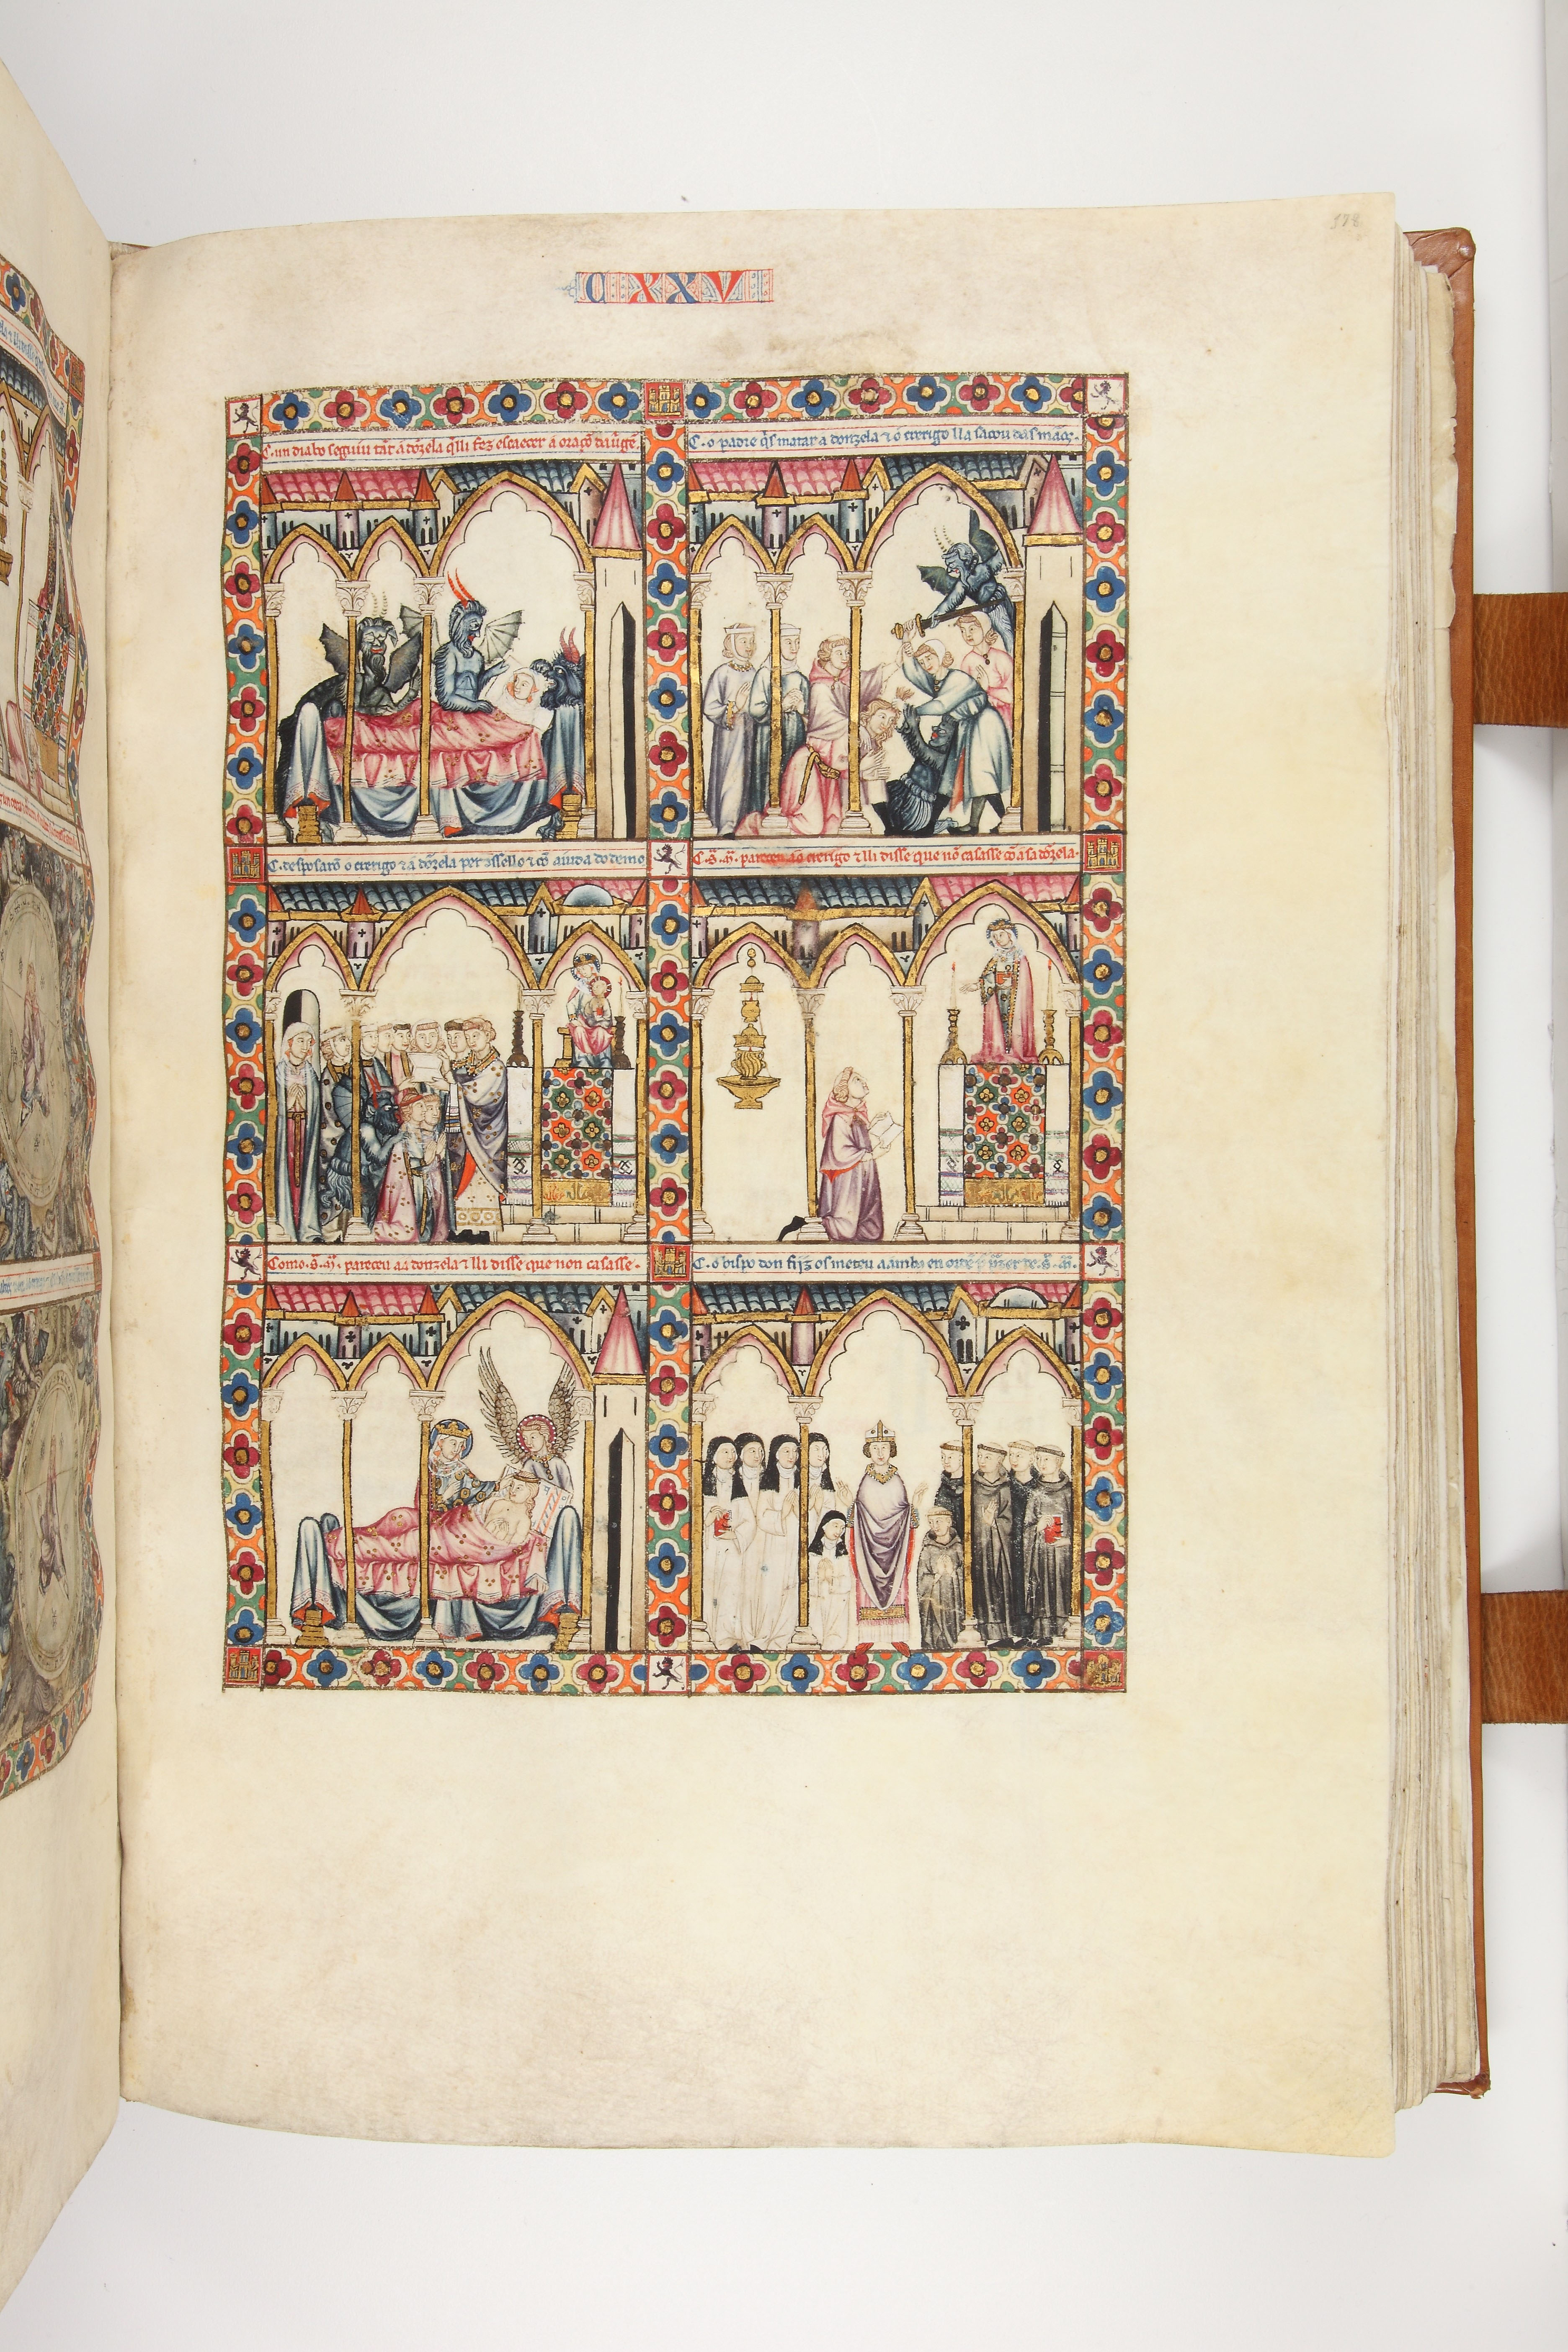 178
CXXV
C. un diabo seguiu tãt a dõzela q̃lli fez escaecer a oraçõ da uirgẽ.
C. o padre q̃s matar a donzela ⁊ o crerigo lla sacou das mãos.
C. desposarõ o crerigo ⁊ a dõzela per ⁊ cõ aiuda do demo
C. S. M. pareceu ao crerigo ⁊ lli disse que nõ casasse cõ a sa dõzela.
Como. S. M. pareceu aa donzela ⁊ lli disse que non casasse.
C. o bispo don fijz os meteu aambos en ordẽ de. S. M.